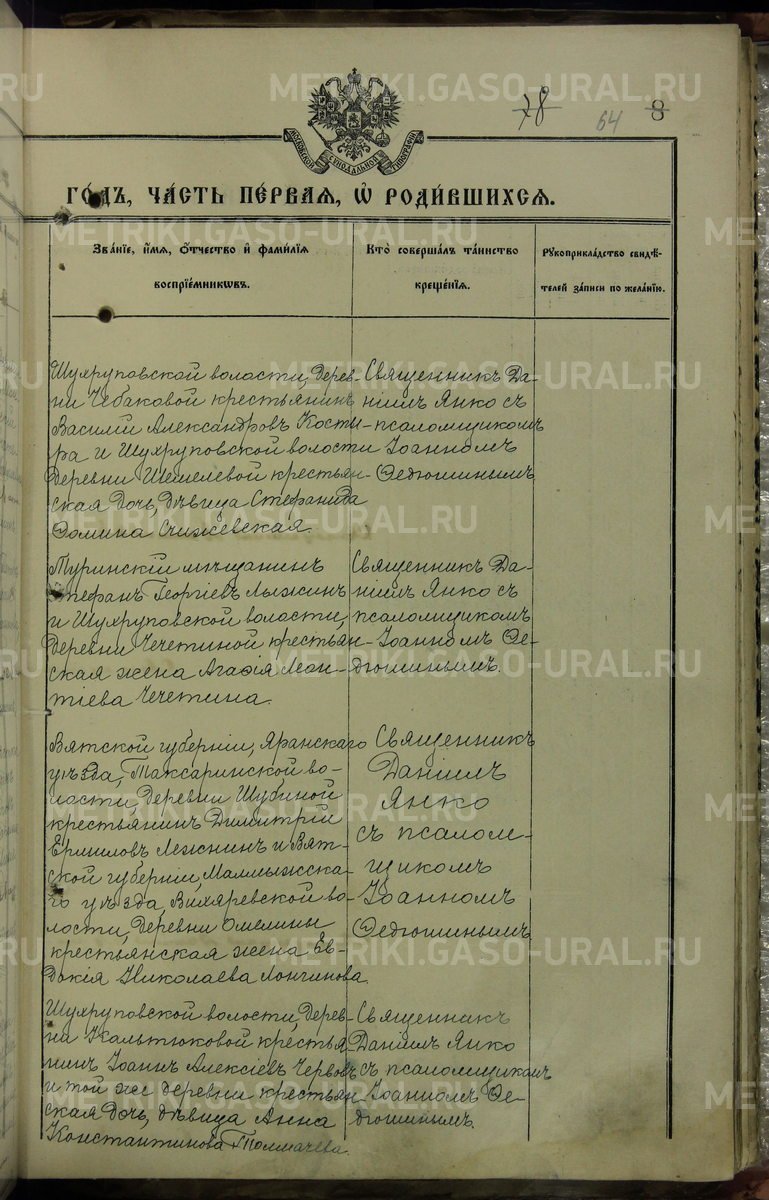 METRIKI.GASO-URAL.RU
78 64 8
МОСКОВСКОЙ СѴНОДАЛЬНОЙ ТИПОГРАФІИ
ГО́ДЪ, ЧА́СТЬ ПЕ́РВАЯ, Ѡ҆ РОДИ́ВШИХСЯ.
Зва́нїе, и҆́мѧ, ѻ҆́тчество и҆ фами́лїѧ
воспрїе́мникѡвъ.
Кто̀ соверша́лъ та́инство
креще́нїѧ.
Рꙋкоприкла́дство свидѣ́-
телей за́писи по жела́нїю.
Шухруповской волости, дерев-
ни Чебаковой крестьянинъ
Василій Александровъ Кости-
ра и Шухруповской волости
деревни Шемелевой крестьян-
ская дочь, дѣвица Стефанида
Ѳомина Счижевская.
Священникъ Да-
ніилъ Янко съ
псаломщикомъ
Іоанномъ
Ѳедюшинымъ
Туринскій мѣщанинъ
Стефанъ Георгіевъ Лыжинъ
и Шухруповской волости,
деревни Чечетиной крестьян-
ская жена Агаѳія Леон-
тіева Чечетина.
Священникъ Да-
ніилъ Янко съ
псаломщикомъ
Іоанномъ Ѳе-
дюшинымъ.
Вятской губерніи, Яранскаго
уѣзда, Таксаринской во-
лости, деревни Шубиной
крестьянинъ Димитрій
Ермиловъ Лежнинъ и Вят-
ской губерніи, Малмыжска-
го уѣзда, Вихаревской во-
лости, деревни Омелины
крестьянская жена Ев-
докія Николаева Лончинова.
Священникъ
Даніилъ
Янко
съ псалом-
щикомъ
Іоанномъ
Ѳедюшинымъ
Шухруповской волости, дерев-
на Кальтюковой крестья
нинъ Іоаннъ Алексіевъ Червовъ
и той же деревни крестьян
ская дочь, дѣвица Анна
Константинова Толмачева.
Священникъ
Даніилъ Янко
съ псаломщикомъ
Іоанномъ Ѳе-
дюшинымъ.